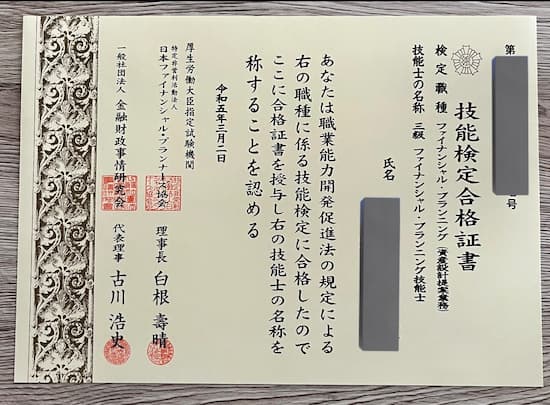 技能検定合格証書
第
号
検定職種 ファイナンシャル・プランニング(資産設計提案業務)
技能士の名称 三級 ファイナンシャル・プランニング技能士
氏名
あなたは職業能力開発促進法の規定による
右の職種に係る技能検定に合格したので
ここに合格証書を授与し右の技能士の名称を
称することを認める
令和五年三月二日
厚生労働大臣指定試験機関
特定非営利活動法人
日本ファイナンシャル・プランナーズ協会
理事長 白根 壽晴
一般社団法人 金融財政事情研究会
代表理事 古川 浩史